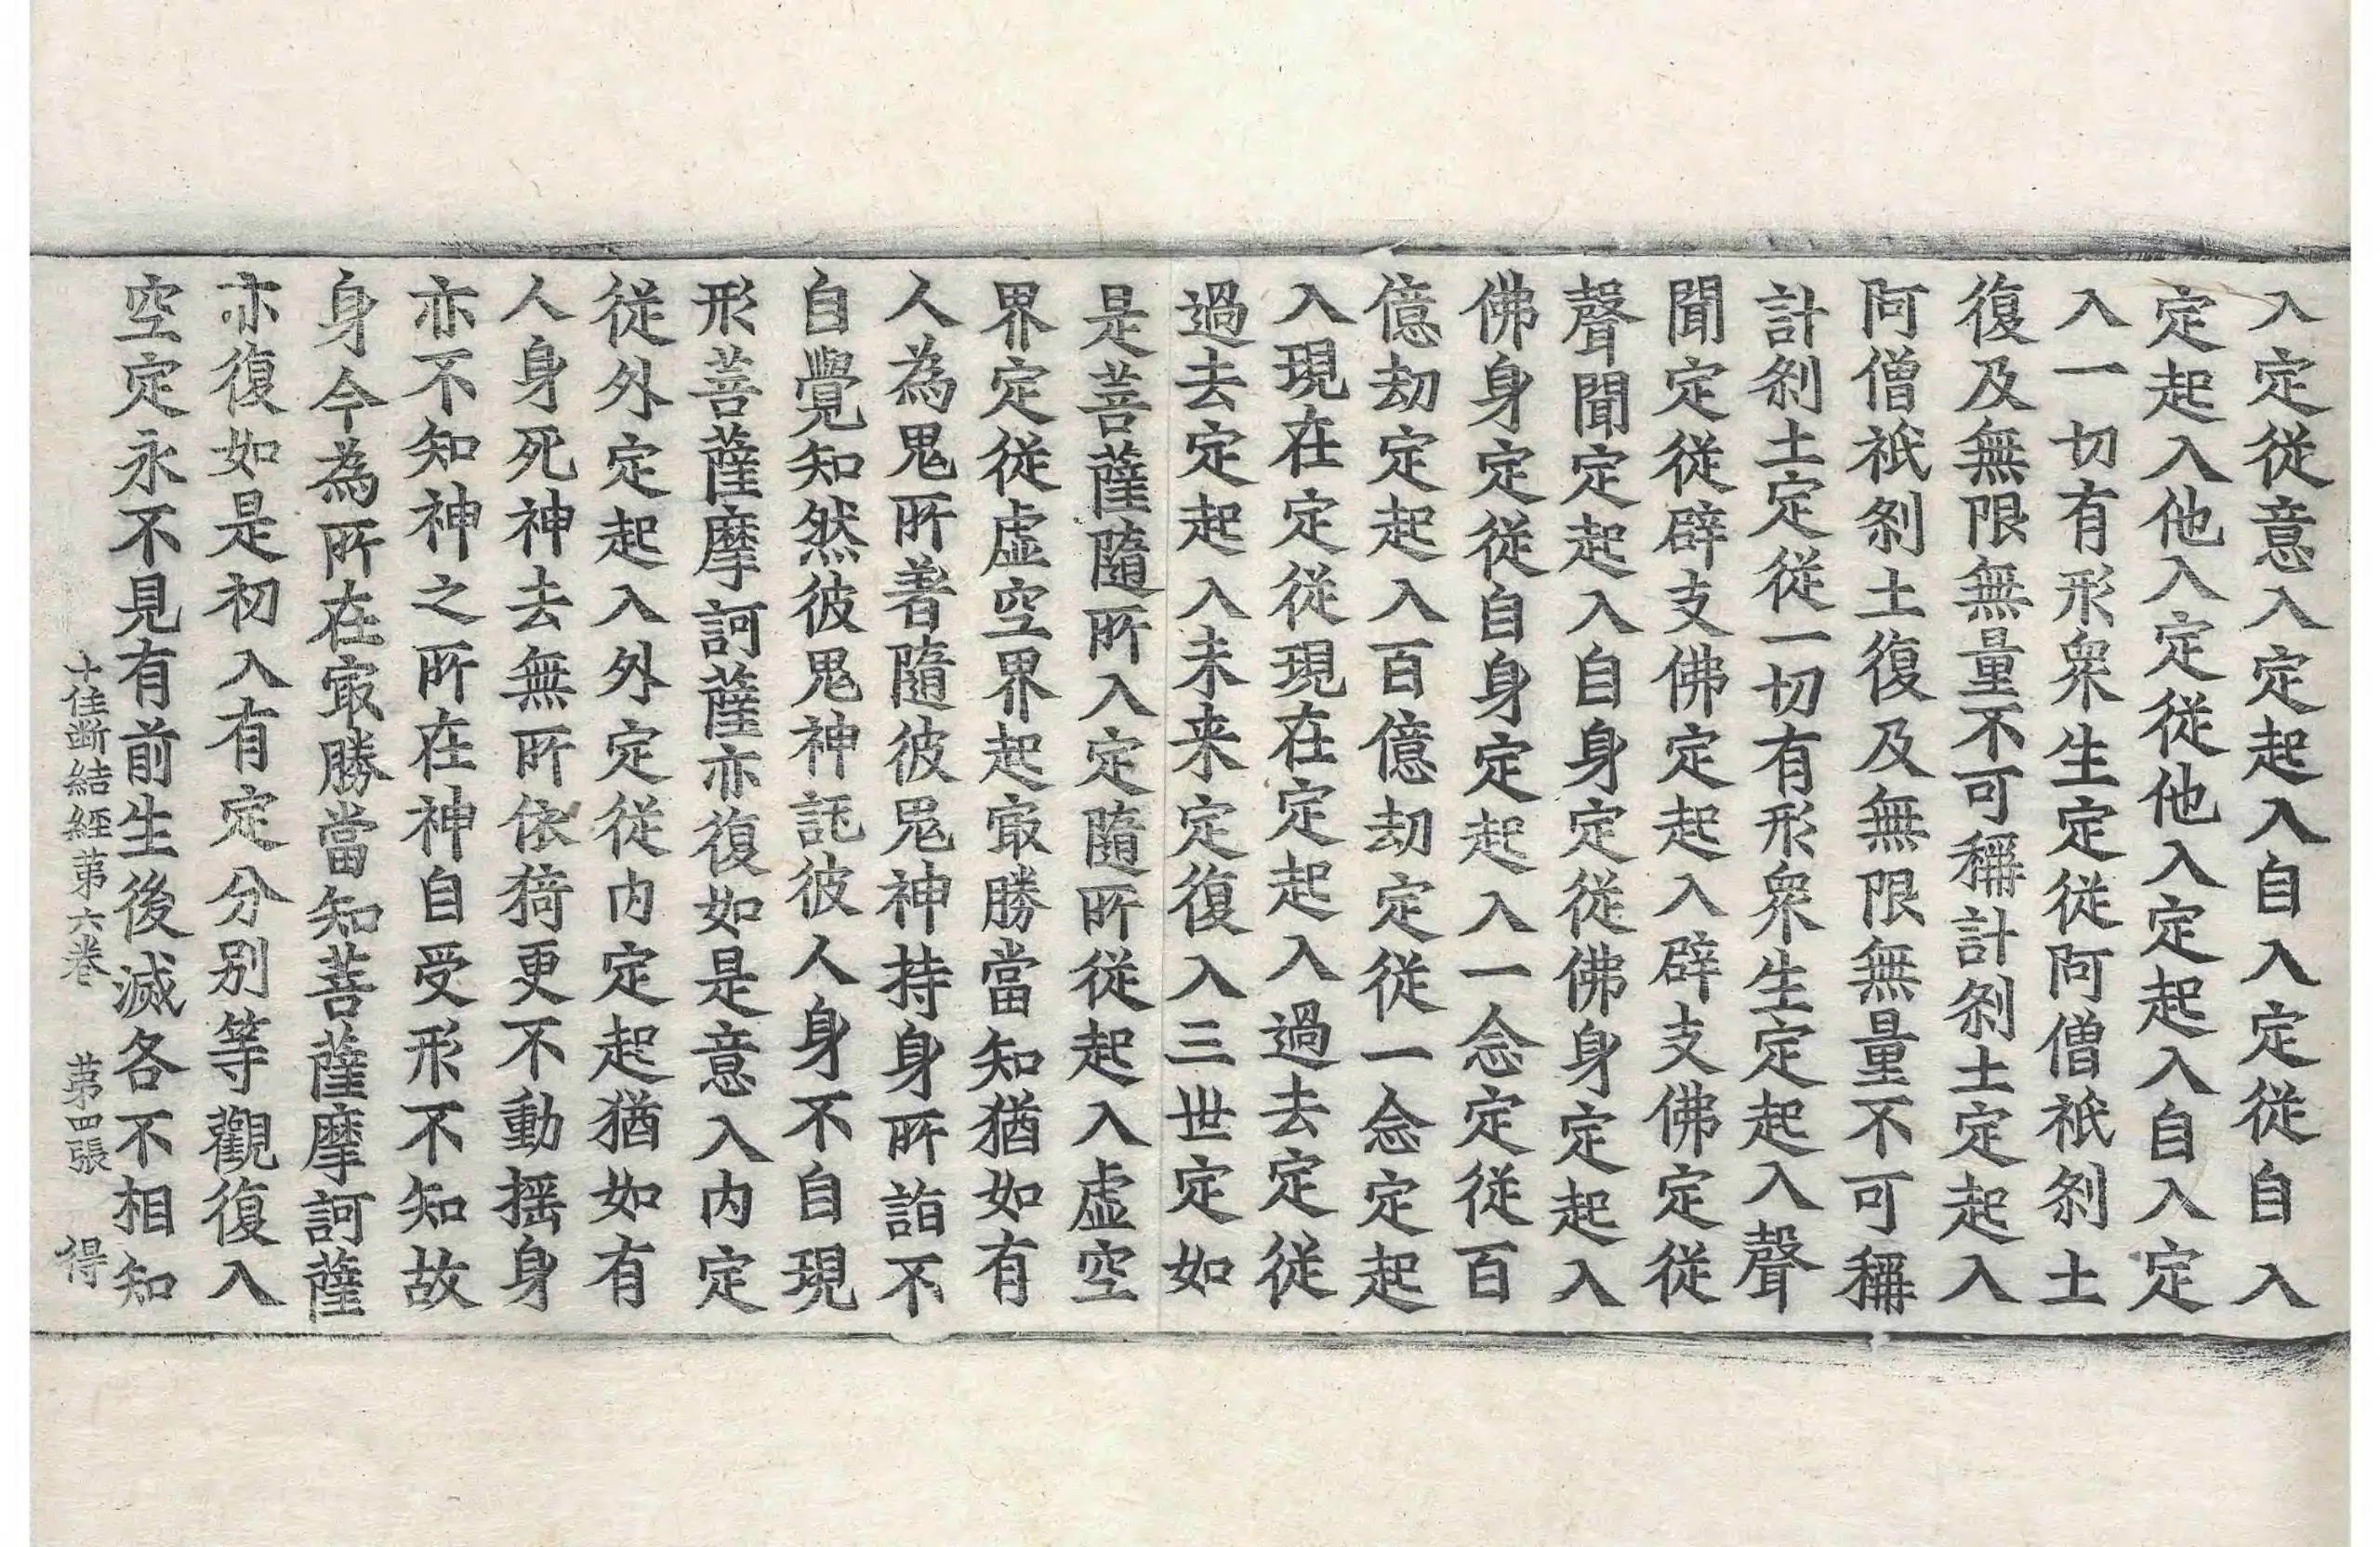 入定從意入定起入自入定從自入
定起入他入定從他入定起入自入定
入一切有形衆生定從阿僧祇刹土
復及無限無量不可稱計刹土定起入
阿僧祇刹土復及無限無量不可稱
計刹土定從一切有形衆生定起入聲
聞定從辟支佛定起入辟支佛定從
聲聞定起入自身定從佛身定起入
佛身定從自身定起入一念定從百
億劫定起入百億劫定從一念定起
入現在定從現在定起入過去定從
過去定起入未来定復入三世定如
是菩薩隨所入定隨所從起入虛空
界定從虛空界起冣勝當知猶如有
人為鬼所著隨彼鬼神持身所詣不
自覺知然彼鬼神託彼人身不自現
形菩薩摩訶薩亦復如是意入内定
從外定起入外定從内定起猶如有
人身死神去無所依猗更不動揺身
亦不知神之所在神自受形不知故
身今為所在冣勝當知菩薩摩訶薩
亦復如是初入有定分別等觀復入
空定永不見有前生後滅各不相知
十住斷結經第六卷 第四張 得